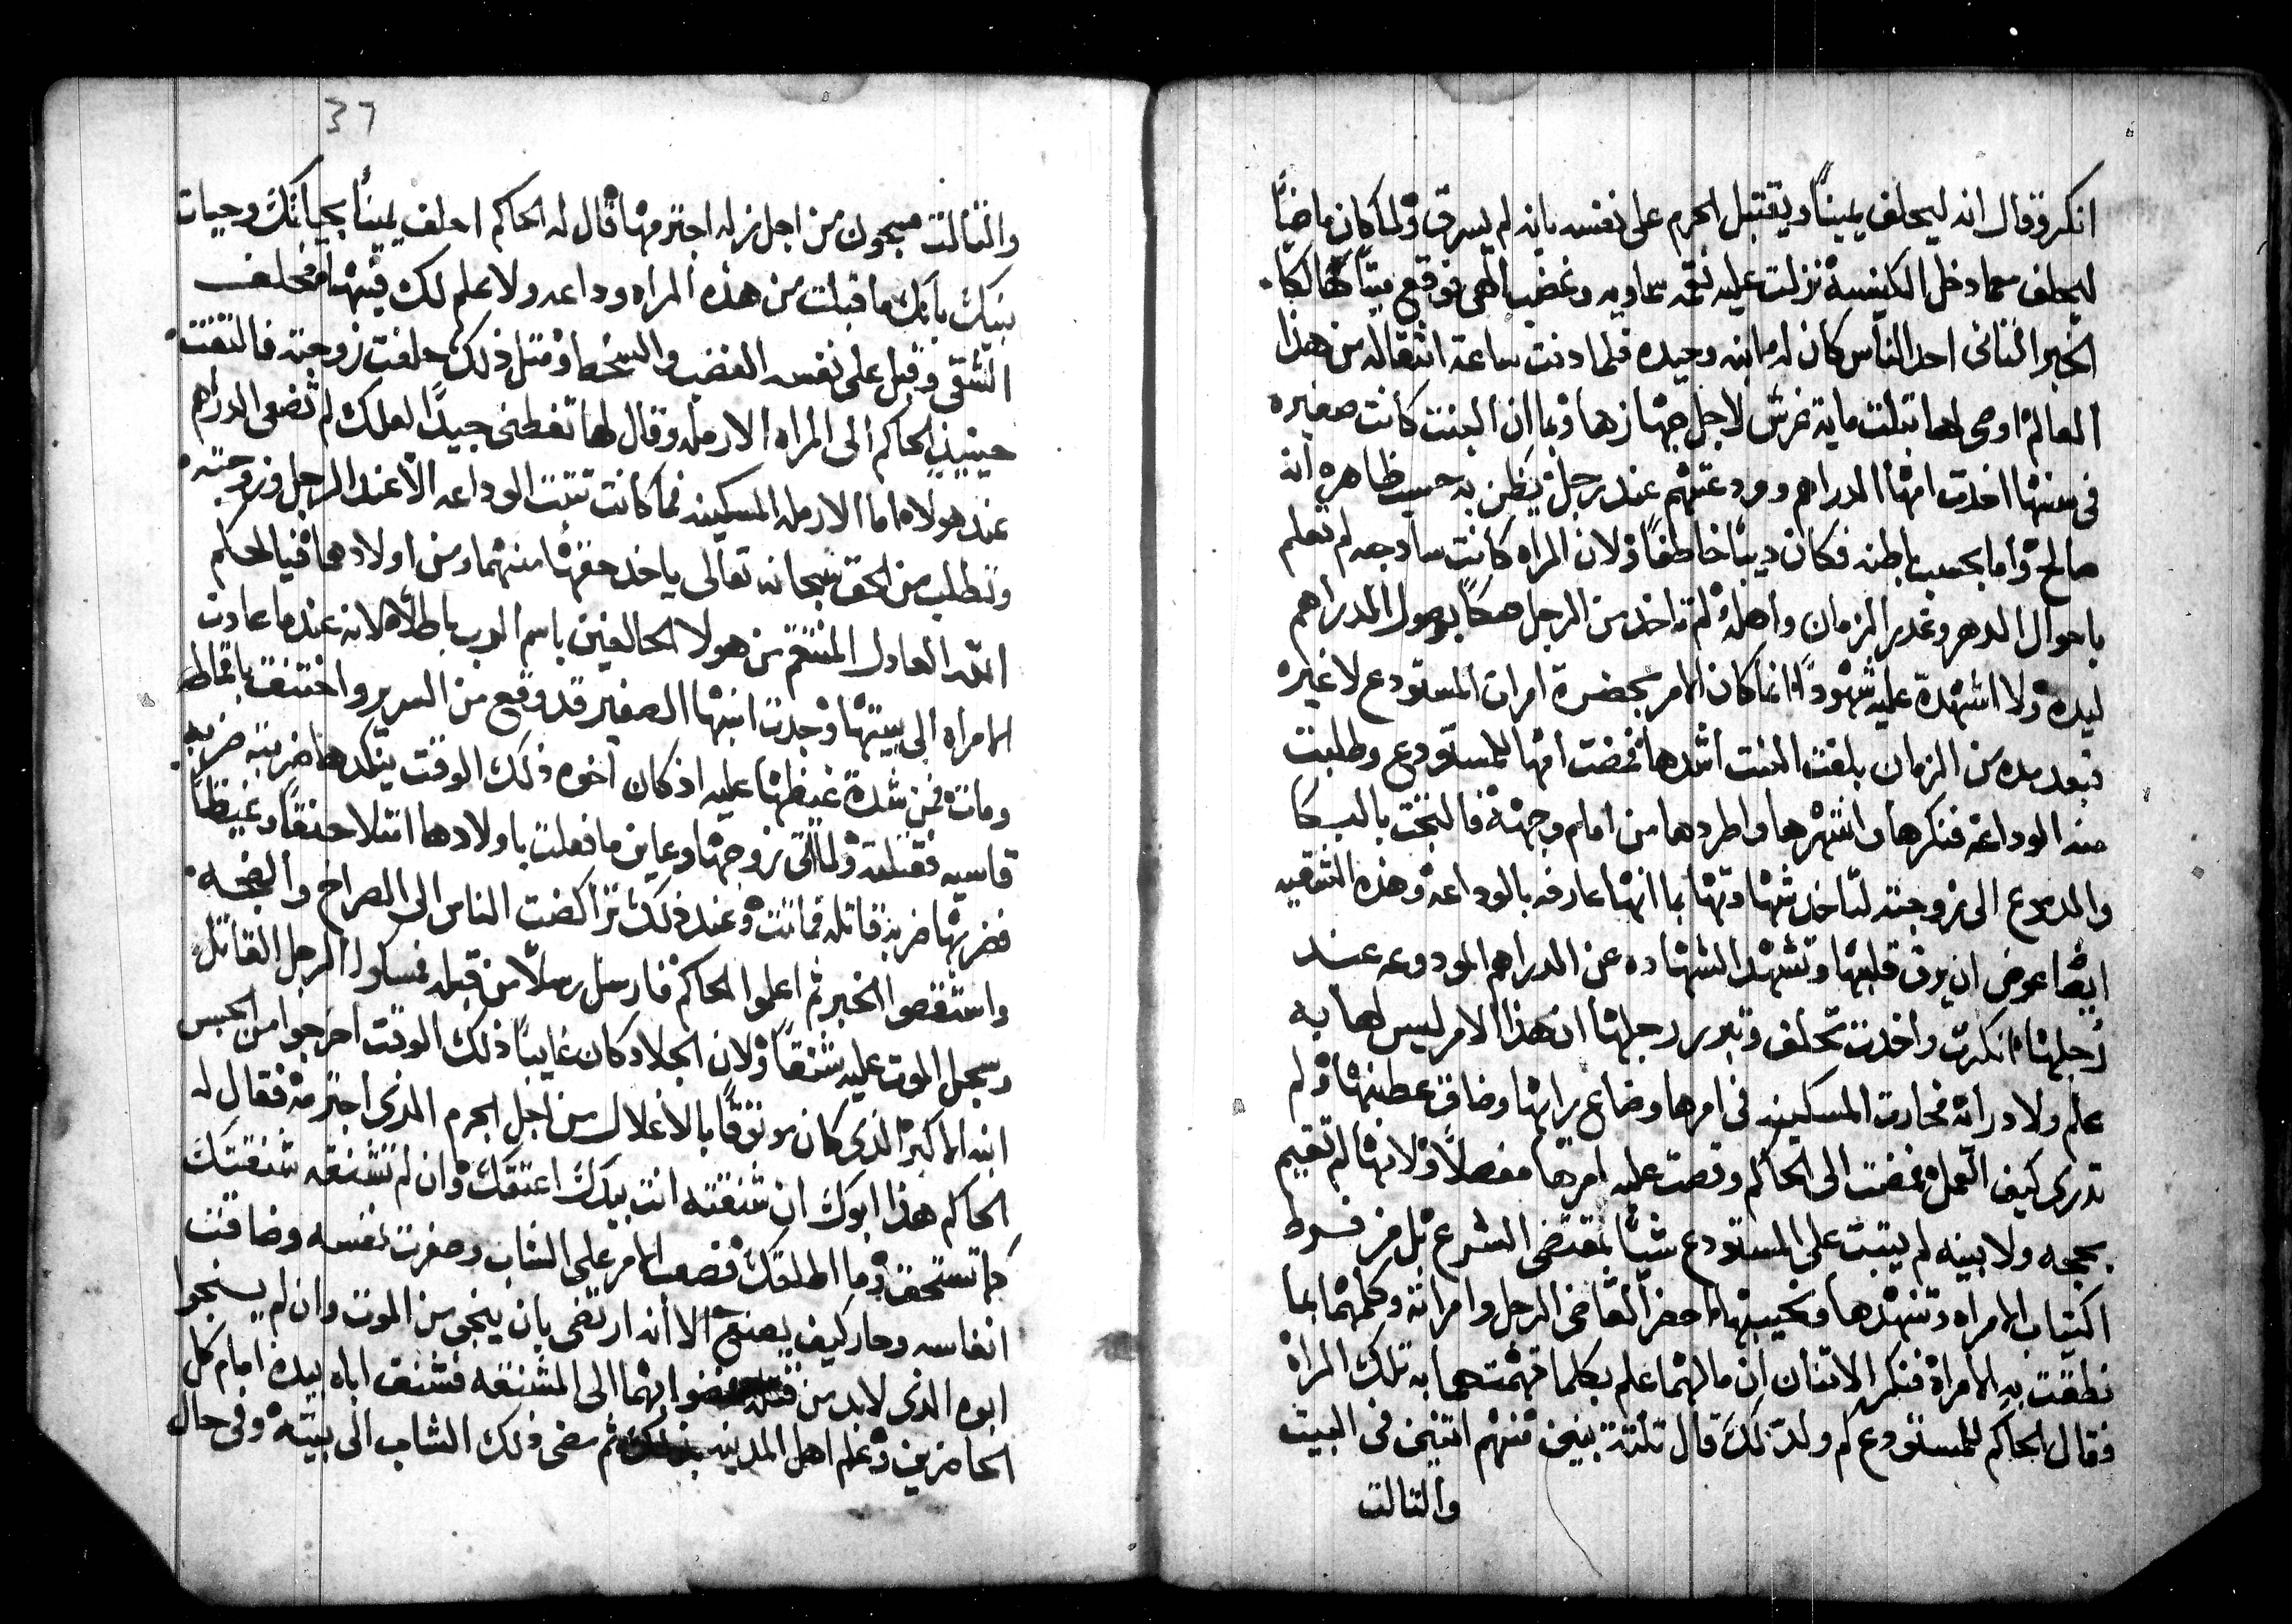 انكر وقال انه ليحلف يمينًا ويقتبل الجرم على نفسه بانه لم يسرق ولما كان ماضيًا
ليحلف سما دخل الكنيسة نزلت عليه نقمه سماويه وغضب الهى فوقع ميتًا هالكًا
الخبر الثانى احد الناس كان له ابنه وحيده فلما دنت ساعة انتقاله من هذا
العالم اوصى لها بتلت ماية غرش لاجل جهازها وبما ان البنت كانت صغيره
فى سنها اخذت امها الدراهم وودعتهم عند رجل يظن به حسب ظاهره انه
صالح واما بحسب باطنه فكان ديبًا خاطفًا ولان المراه كانت سادجه لم تعلم
باحوال الدهر وغدر الزمان واهله لم تاخد من الرجل صكًا بوصول الدراهم
ليده ولا اشهدة عليه شهودًا انما كان الامر بحضرة امرات المستودع لا غيره
فبعد مده من الزمان بلغت البنت اشدها فمضت امها للمستودع وطلبت
منه الوداعه فنكرها وانتهرها واطردها من امام وجهه فالتجت بالبكا
والدموع الى زوجته لتاخد شهادتها بما انها عارفه بالوداعة وهذه الشقيه
ايضًا عوض ان يرق قلبها وتشهد الشهاده عن الدراهم المودوعه عند
رجلها انكرت واخدت تحلف وتبرر رجلها ان هذا الامر ليس لها به
علم ولا درايه فحارت المسكينه فى امرها وضاع رايها وضاق عطنها ولم
تدرى كيف العمل فمضت الى الحاكم وقصت عليه امرها مفصلًا ولانها لم تقيم
بحجه ولا بينه لم يتبت على المستودع شيًا بمقتضى الشرع بل من فرط
اكتياب الامراه وتنهدها ونحيبها احضر القاضى الرجل وامراته وكلمهما بما
نطقت به الامراة فنكر الاتنان ان ما لهما علم بكلما تهمتهما به تلك المراة
فقال الحاكم للمستودع كم ولد لك قال تلتة بنين منهم اتنين فى البيت
والتالت
37
والتالت مسجون من اجل زله اجترمها قال له الحاكم احلف يمينًا بحياتك وحيات
بنيك بانك ما قبلت من هذه المراه وداعه ولا علم لك فيها فحلف
الشقى وقبل على نفسه الغضب والسخط ومتل ذلك حلفت زوجته فالتفت
حينيذ الحاكم الى المراه الارمله وقال لها تفطنى جيدًا لعلك لم تضعى الدراهم
عند هولاء اما الارمله المسكينه فما كانت تتبت الوداعه الا عند الرجل وزوجته
وتطلب من الحق سبحانه تعالى ياخد حقها منهما ومن اولادهما فيا لحكم
الله العادل المنتقم من هولا الحالفين باسم الرب باطلًا لانه عندما عادت
الامراه الى بيتها وجدت ابنها الصغير قد وقع من السرير واختنق باقماطه
ومات فمن شدة غيظها عليه اذ كان اخوه ذلك الوقت ينكدها ضربته ضربه
قاسيه فقتلته ولما اتى زوجها وعاين ما فعلت باولادها امتلا حنقًا وغيظًا
فضربها ضربة قاتله فماتت وعند ذلك تراكضت الناس الى الصراخ والضجه
واستقصوا الخبر ثم اعلموا الحاكم فارسل رسلًا من قبله فمسكوا الرجل القاتل
وسجل الموت عليه شنقًا ولان الجلاد كان غايبًا ذلك الوقت اخرجوا من الحبس
ابنه الاكبر الذى كان موتوقًا بالاغلال من اجل الجرم الذى اجترمه فقال له
الحاكم هذا ابوك ان شنقته انت بيدك اعتقك وان لم تشنقه شنقتك
كما تستحق وما اطلقك فصعب الامر على الشاب وصغرت نفسه وضاقت
انفاسه وحار كيف يصنع الا انه ارتضى بان ينجى من الموت وان لم ينجوا
ابوه الذى لابد من قتله فمضوا بهما الى المشنقه فشنق اباه بيده امام كل
الحاضرين وعلم اهل المدينه بذلك ثم مضى ذلك الشاب الى بيته وفى حال